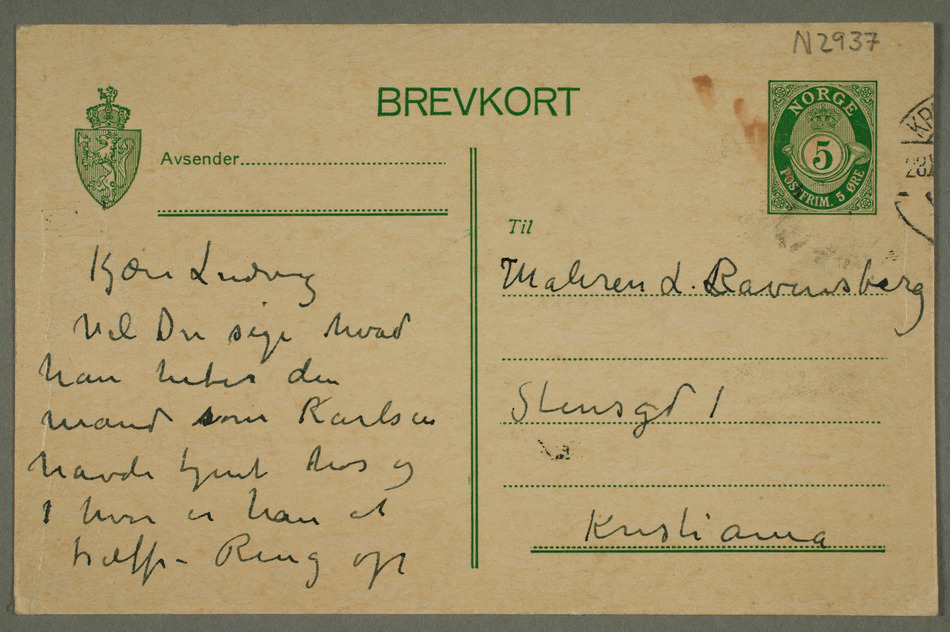 N2937
BREVKORT
Avsender
NORGE
5
POSTFRIM. 5 ØRE
KR
28
Til
Kjære Ludvig
Vil Du sige hvad
han heter den
mand som Karlsen
havde tjent hos og
hvor er han at
træffe - Ring op
Maleren L. Ravensberg
Stensgd 1
Kristiania